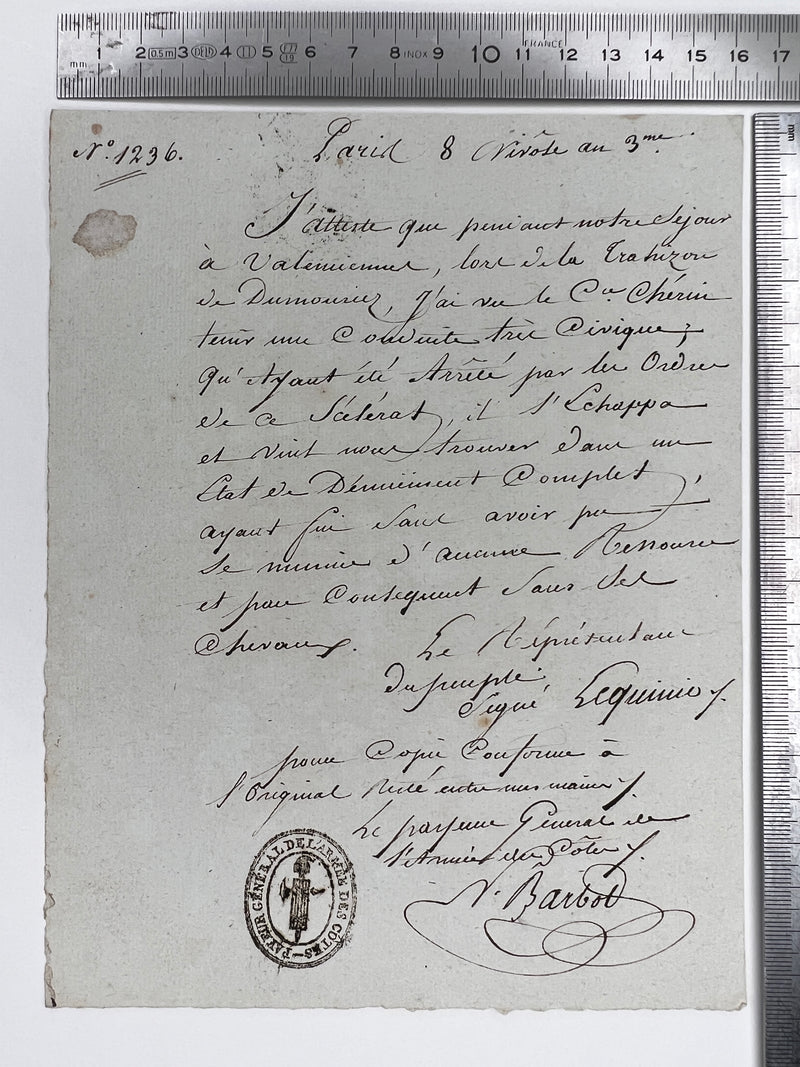 mm 1 2 0.5m 3 DELA 4 11 5 6 7 8 INOX 9 10 11 FRANCE 12 13 14 15 16 17
mm
N.° 1236.
Paris 8 Nivôse an 3.me
J'atteste que pendant notre Séjour
à Valenciennes, lors de la Trahizon
de Dumouriez, J'ai vu le C.en Chérin
tenir une Conduite très Civique;
qu'Ayant été Arrêté par les Ordres
de ce Scélérat, il s'Echappa
et vint nous trouver dans un
Etat de Dénuement Complet,
ayant fui Sans avoir pu
se munir d'aucune Ressource
et par Conséquent Sans Ses
Chevaux.
Le Réprésentant
du peuple
Signé Lequinio
pour Copie Conforme à
l'Original Resté entre mes mains
Le payeur Général de
l'Armée des Côtes
N. Barbot
PAYEUR GÉNÉRAL DE L'ARMÉE DES CÔTES